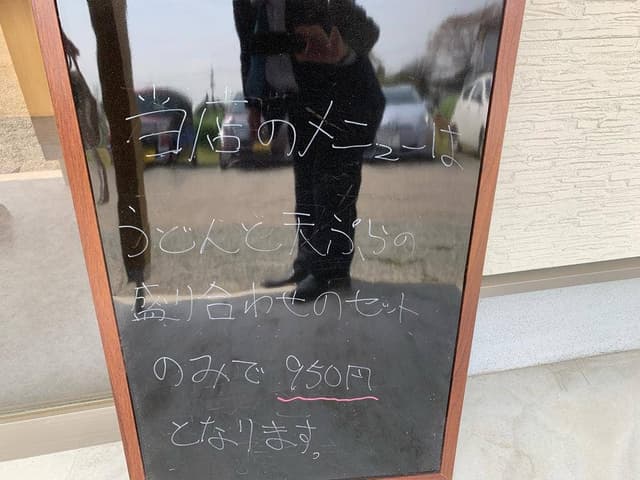 当店のメニューは
うどんと天ぷらの
盛り合わせのセット
のみで 950円
となります。